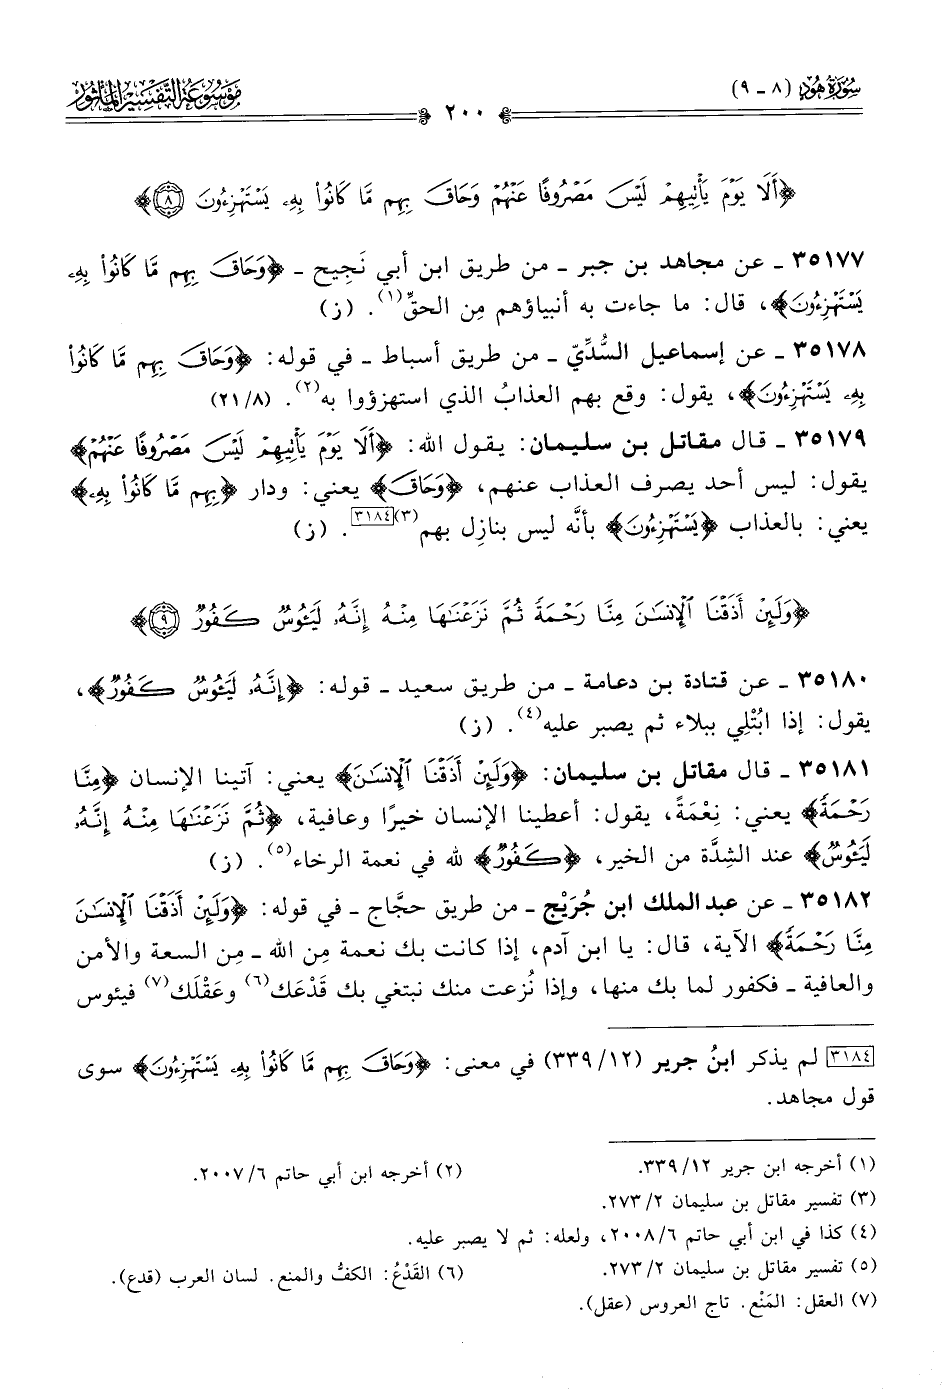 سُورَةُ هُودٍ (٨ - ٩)
٢٠٠
مَوْسُوعَة التَّفْسِيرِ المَأْثُور
﴿أَلَا يَوْمَ يَأْتِيهِمْ لَيْسَ مَصْرُوفًا عَنْهُمْ وَحَاقَ بِهِم مَّا كَانُوا۟ بِهِۦ يَسْتَهْزِءُونَ ٨﴾
٣٥١٧٧ - عن مجاهد بن جبر - من طريق ابن أبي نَجِيح - ﴿وَحَاقَ بِهِم مَّا كَانُوا۟ بِهِۦ
يَسْتَهْزِءُونَ﴾، قال: ما جاءت به أنبياؤهم مِن الحقِّ(١). (ز)
٣٥١٧٨ - عن إسماعيل السُّدِّيّ - من طريق أسباط - في قوله: ﴿وَحَاقَ بِهِم مَّا كَانُوا۟
بِهِۦ يَسْتَهْزِءُونَ﴾، يقول: وقع بهم العذابُ الذي استهزؤوا به(٢). (٢١/٨)
٣٥١٧٩ - قال مقاتل بن سليمان: يقول الله: ﴿أَلَا يَوْمَ يَأْتِيهِمْ لَيْسَ مَصْرُوفًا عَنْهُمْ﴾
يقول: ليس أحد يصرف العذاب عنهم، ﴿وَحَاقَ﴾ يعني: ودار ﴿بِهِم مَّا كَانُوا۟ بِهِۦ﴾
يعني: بالعذاب ﴿يَسْتَهْزِءُونَ﴾ بأنَّه ليس بنازِل بهم(٣)[٣١٨٤]. (ز)
﴿وَلَئِنْ أَذَقْنَا ٱلْإِنسَٰنَ مِنَّا رَحْمَةً ثُمَّ نَزَعْنَٰهَا مِنْهُ إِنَّهُۥ لَيَـُٔوسٌ كَفُورٌ ٩﴾
٣٥١٨٠ - عن قتادة بن دعامة - من طريق سعيد - قوله: ﴿إِنَّهُۥ لَيَـُٔوسٌ كَفُورٌ﴾،
يقول: إذا ابْتُلِي ببلاء ثم يصبر عليه(٤). (ز)
٣٥١٨١ - قال مقاتل بن سليمان: ﴿وَلَئِنْ أَذَقْنَا ٱلْإِنسَٰنَ﴾ يعني: آتينا الإنسان ﴿مِنَّا
رَحْمَةً﴾ يعني: نِعْمَةً، يقول: أعطينا الإنسان خيرًا وعافية، ﴿ثُمَّ نَزَعْنَٰهَا مِنْهُ إِنَّهُۥ
لَيَـُٔوسٌ﴾ عند الشِدَّة من الخير، ﴿كَفُورٌ﴾ لله في نعمة الرخاء(٥). (ز)
٣٥١٨٢ - عن عبد الملك ابن جُرَيْج - من طريق حجَّاج - في قوله: ﴿وَلَئِنْ أَذَقْنَا ٱلْإِنسَٰنَ
مِنَّا رَحْمَةً﴾ الآية، قال: يا ابن آدم، إذا كانت بك نعمة مِن الله - مِن السعة والأمن
والعافية - فكفور لما بك منها، وإذا نُزعت منك نبتغي بك قَدْعَك(٦) وعَقْلَك(٧) فيئوس
[٣١٨٤] لم يذكر ابنُ جرير (٣٣٩/١٢) في معنى: ﴿وَحَاقَ بِهِم مَّا كَانُوا۟ بِهِۦ يَسْتَهْزِءُونَ﴾ سوى
قول مجاهد.
(١) أخرجه ابن جرير ١٢/ ٣٣٩.
(٢) أخرجه ابن أبي حاتم ٦/ ٢٠٠٧.
(٣) تفسير مقاتل بن سليمان ٢/ ٢٧٣.
(٤) كذا في ابن أبي حاتم ٦/ ٢٠٠٨، ولعله: ثم لا يصبر عليه.
(٥) تفسير مقاتل بن سليمان ٢/ ٢٧٣.
(٦) القَدْعُ: الكفُّ والمنع. لسان العرب (قدع).
(٧) العقل: المَنْع. تاج العروس (عقل).